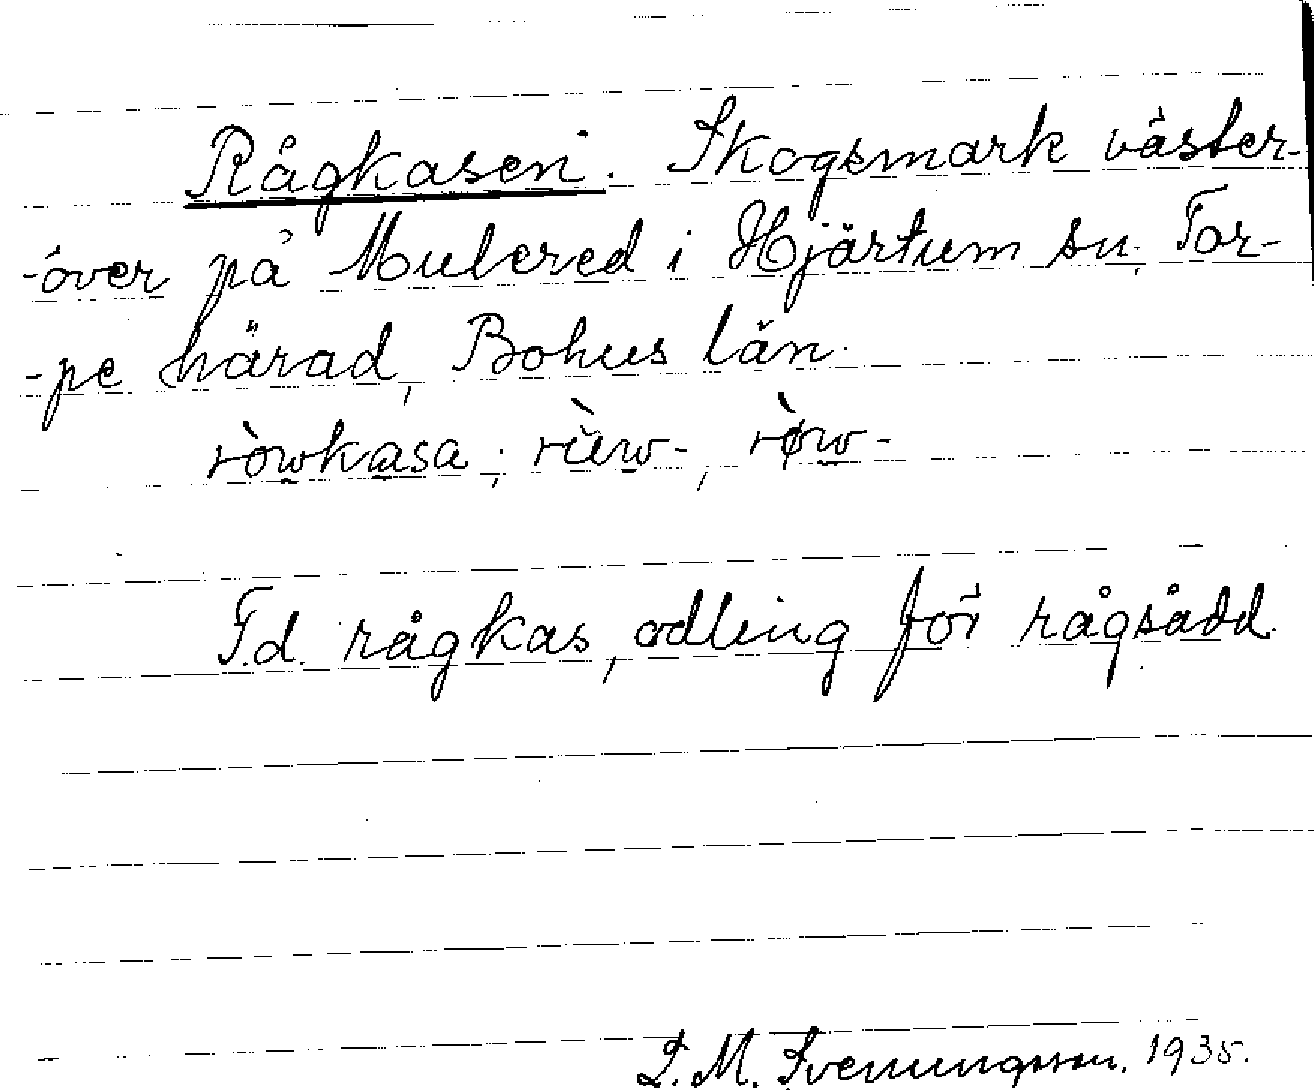 Rågkasen. Skogsmark väster-
-över på Mulered i Hjärtum sn, Tor-
-pe härad, Bohus län.
ròwkasa; rùw-, rø̀w-
F.d. rågkas, odling för rågsådd.
L. M. Svenungsson. 1935.